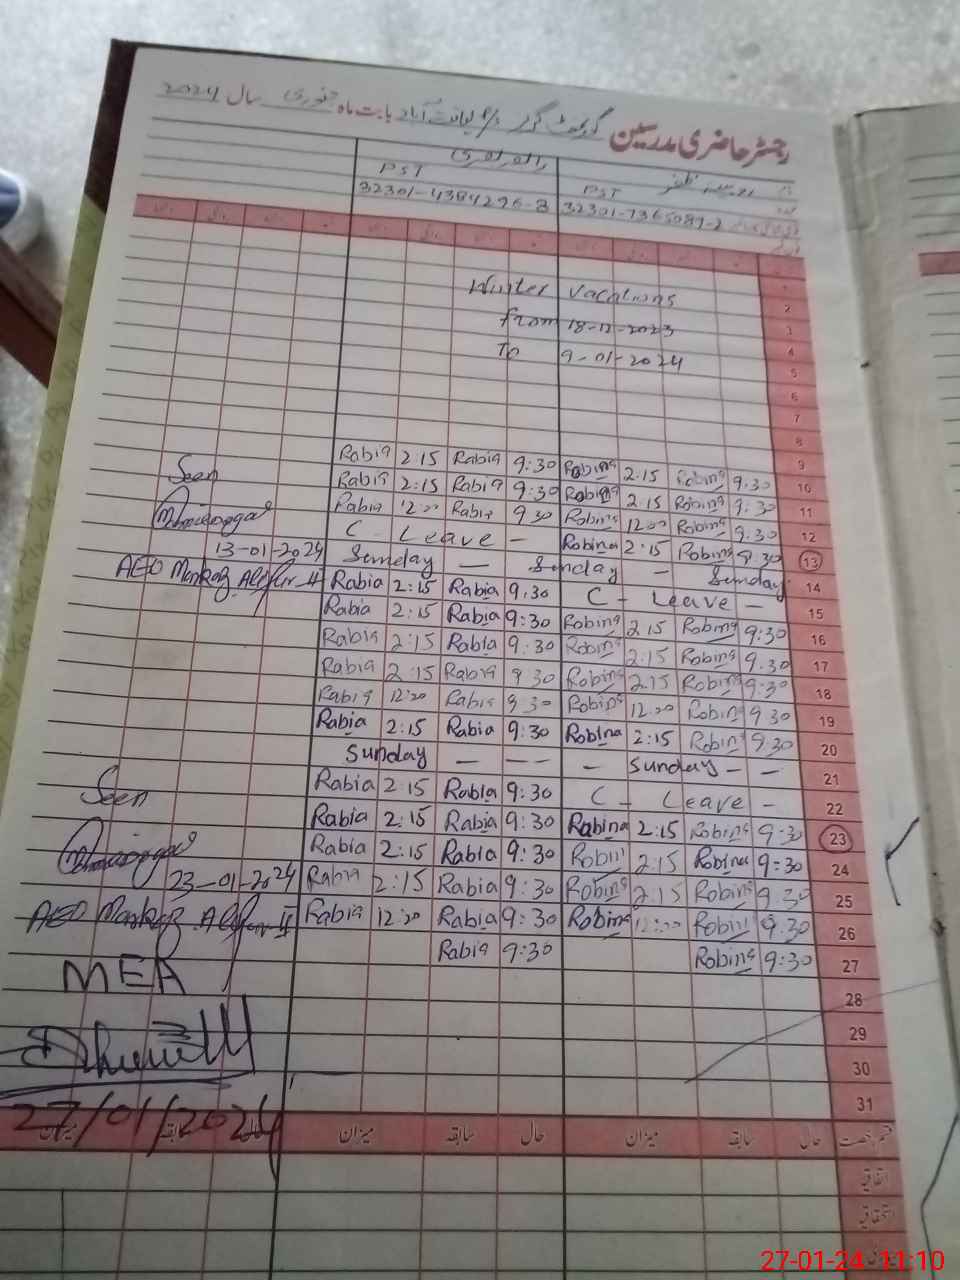 رجسٹر حاضری مدرسین گورنمنٹ گرلز p/s لیاقت آباد بابت ماہ جنوری سال 2024
PST PST
32301-4384296-8 32301-7365089-2
1
Winter Vacations 2
from 18-12-2023 3
To 9-01-2024 4
5
6
7
8
Rabia 2:15 Rabia 9:30 Robina 2:15 Robina 9:30 9
Seen Rabia 2:15 Rabia 9:30 Robina 2:15 Robina 9:30 10
Rabia 12:00 Rabia 9 30 Robina 12:00 Robina 9.30 11
C Leave - Robina 2:15 Robina 9.30 12
13-01-2024 Sunday — Sunday — Sunday 13
AEO Markaz Alipur II Rabia 2:15 Rabia 9:30 C - Leave - 14
Rabia 2:15 Rabia 9:30 Robina 2.15 Robina 9:30 15
Rabia 2:15 Rabia 9:30 Robina 2:15 Robina 9.30 16
Rabia 2:15 Rabia 9 30 Robina 2:15 Robina 9:30 17
Rabia 12:20 Rabia 9 30 Robina 12:20 Robina 9 30 18
Rabia 2:15 Rabia 9:30 Robina 2:15 Robina 9.30 19
Sunday — — - Sunday - - 20
Rabia 2:15 Rabia 9:30 C - Leave - 21
Seen Rabia 2:15 Rabia 9:30 Rabina 2:15 Robina 9:30 22
Rabia 2:15 Rabia 9:30 Robina 2:15 Robina 9:30 23
23-01-2024 Rabia 2:15 Rabia 9:30 Robina 2:15 Robina 9.30 24
AEO Markaz Alipur II Rabia 12:20 Rabia 9:30 Robina 12:20 Robina 9.30 25
Rabia 9:30 Robina 9:30 26
MEA 27
28
29
30
31
27/01/2024
میزان سابقہ حال میزان سابقہ حال میزان سابقہ حال قسم رخصت
اتفاقیہ
استحقاقیہ
27-01-24 11:10